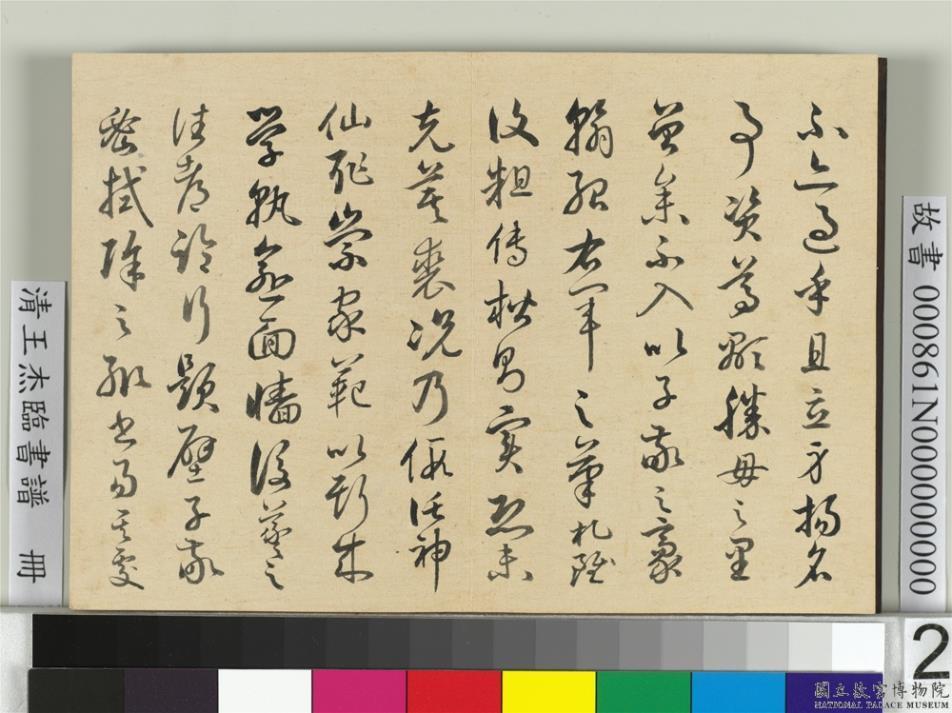 不亦過乎且立身揚名
事資尊顯勝母之里
曾參不入以子敬之豪
翰紹右軍之筆札雖
復粗傳楷則實恐未
克箕裘況乃假託神
仙恥崇家範以斯成
學孰愈面墻後羲之
往都臨行題壁子敬
密拭除之輒書易其處
故書 000861N000000000
清王杰臨書譜 冊
2
國立故宮博物院
NATIONAL PALACE MUSEUM